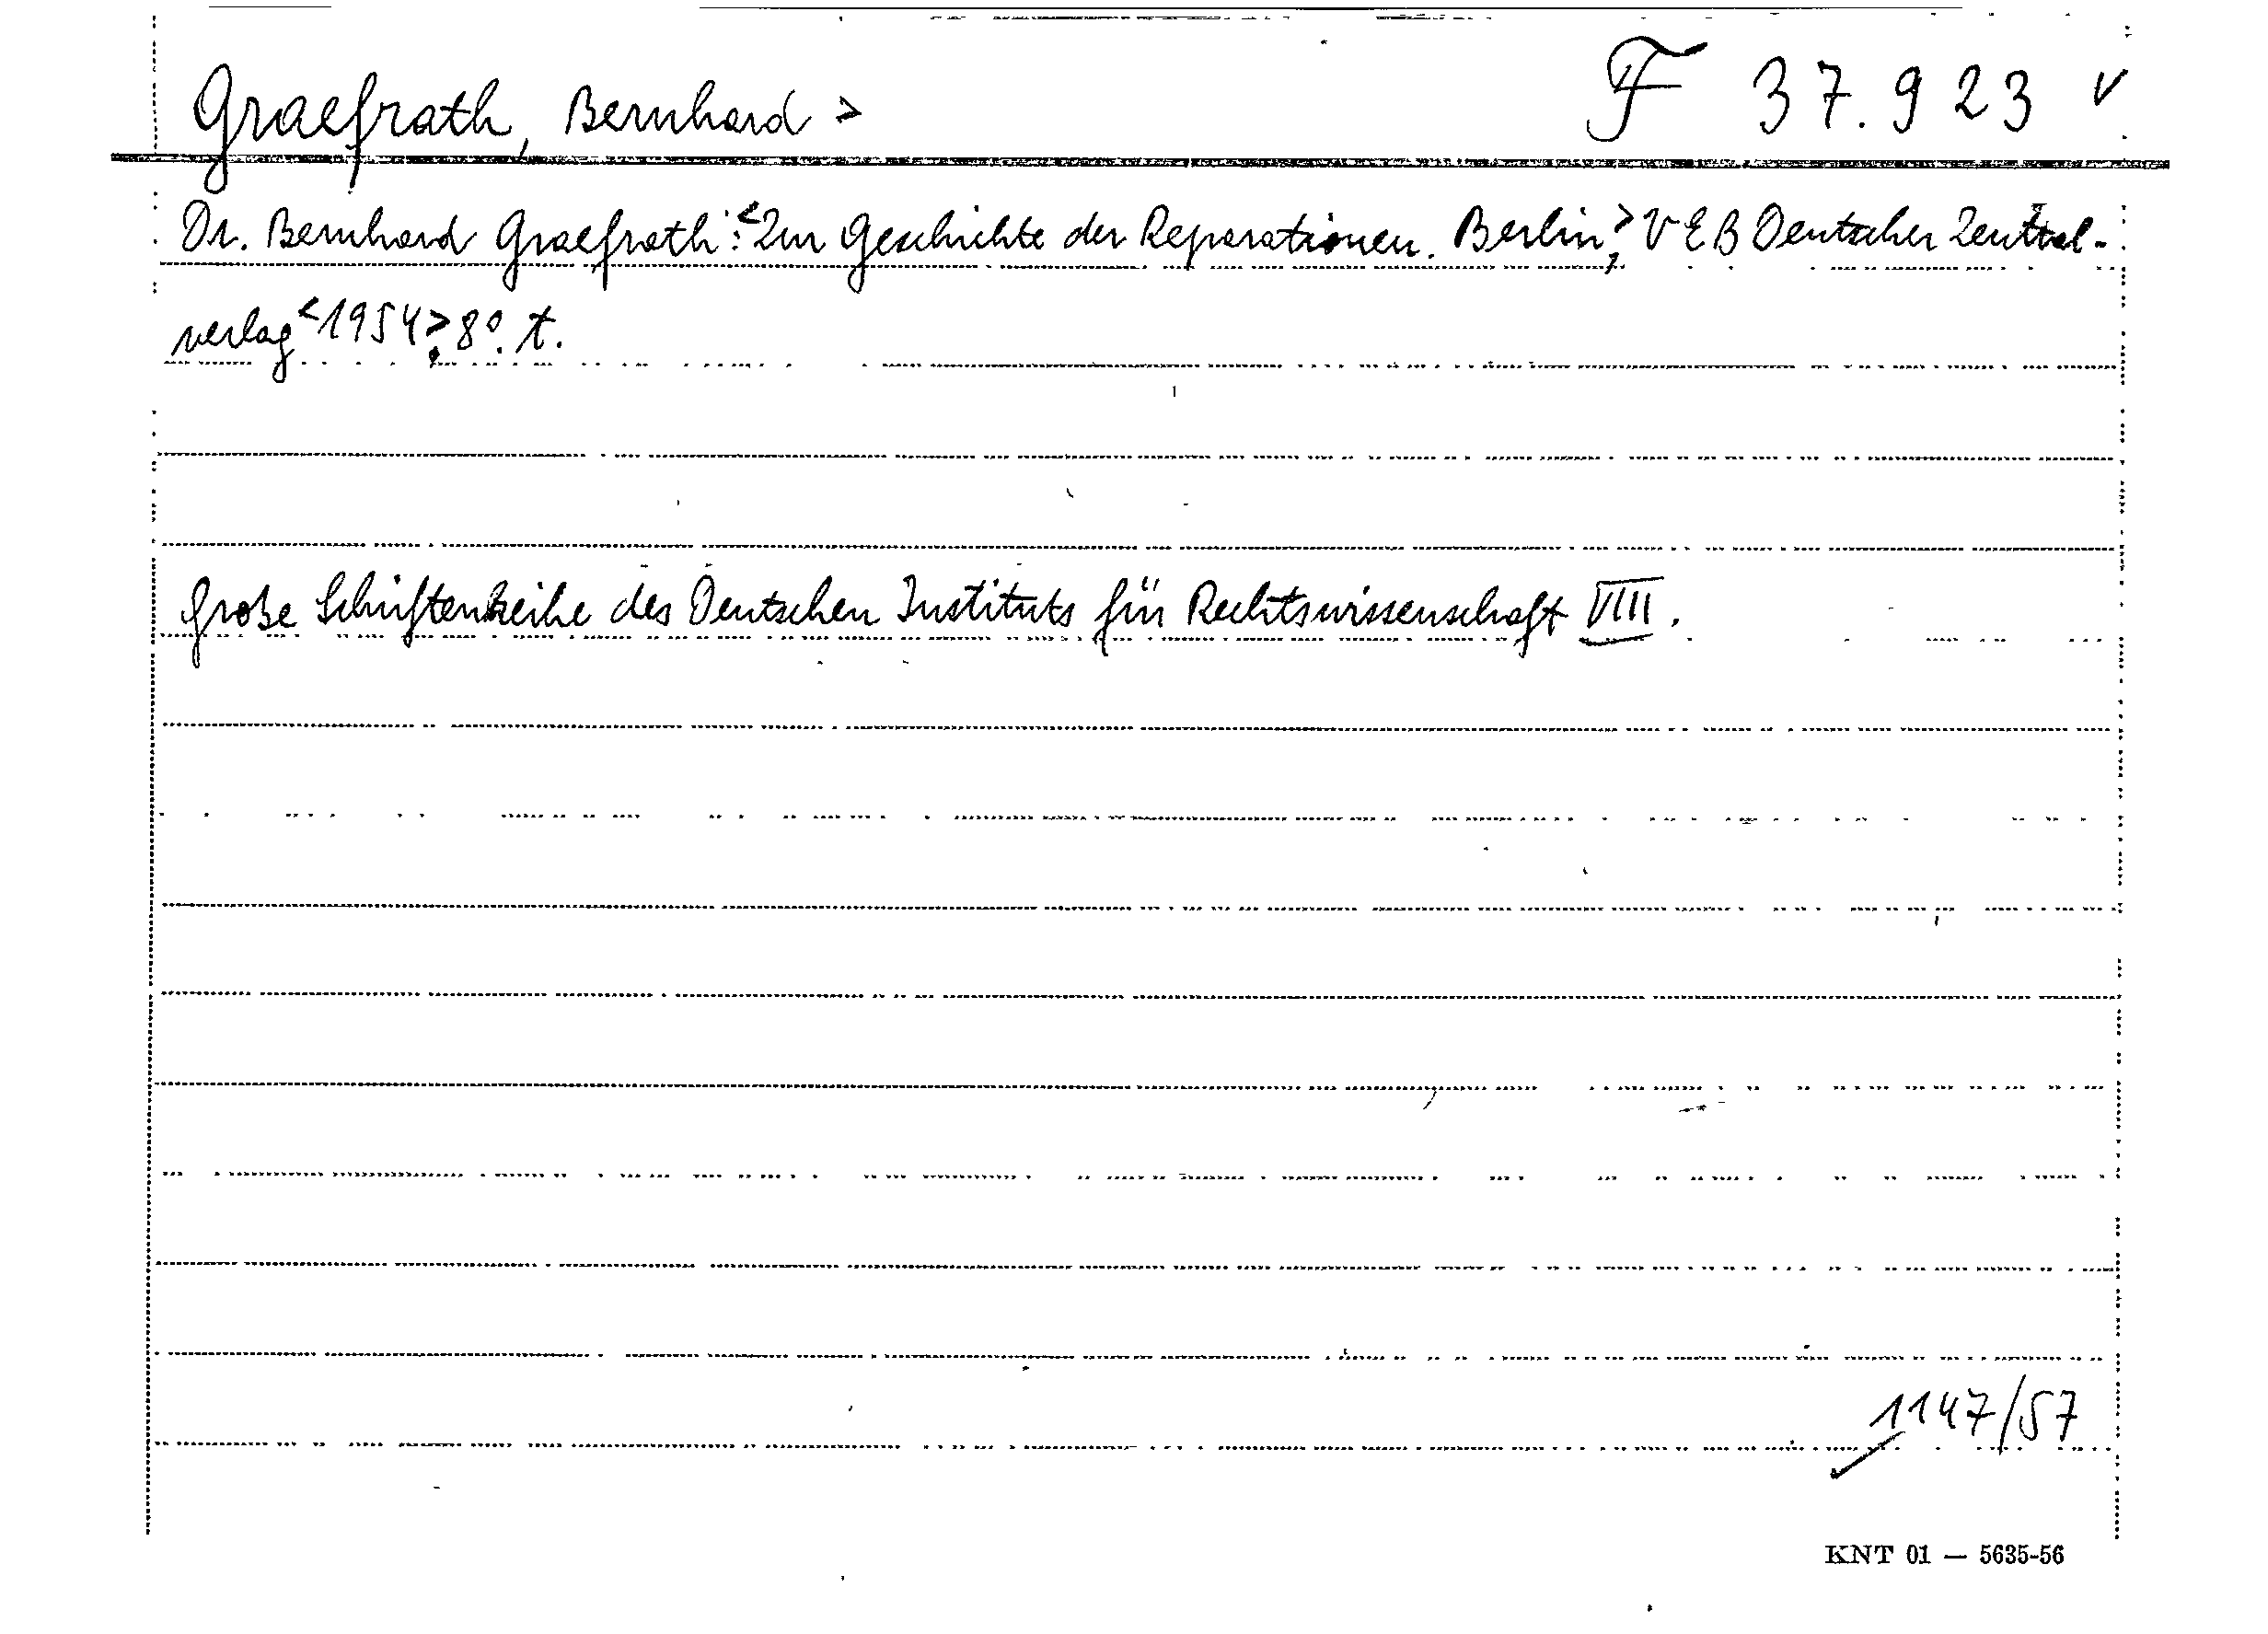 Graefrath, Bernhard > F 37.923 v
Dr. Bernhard Graefrath:<Zur Geschichte der Reparationen. Berlin>, VEB Deutscher Zentral-
verlag <1954>. 8°. t.
Große Schriftenreihe des Deutschen Instituts für Rechtswissenschaft VIII.
1147/57
KNT 01 — 5635-56